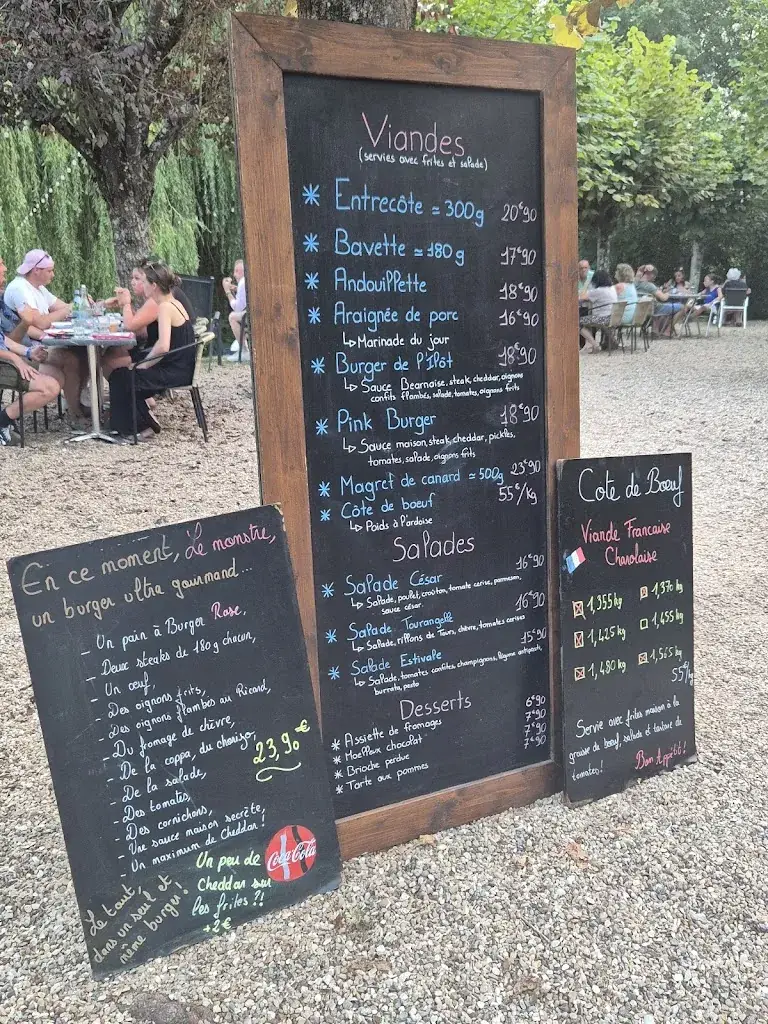 Viandes
(servies avec frites et salade)
* Entrecôte ≃ 300g 20€90
* Bavette ≃ 180g 17€90
* Andouillette 18€90
* Araignée de porc 16€90
↳ Marinade du jour
* Burger de l'Îlôt 18€90
↳ Sauce Bearnaise, steak, cheddar, oignons
confits flambés, salade, tomates, oignons frits
* Pink Burger 18€90
↳ Sauce maison, steak, cheddar, pickles,
tomates, salade, oignons frits
* Magret de canard ≃ 500g 23€90
* Côte de boeuf 55€/kg
↳ Poids à l'ardoise
Salades
* Salade César 16€90
↳ Salade, poulet, croûton, tomate cerise, parmesan,
sauce césar.
* Salade Tourangelle 16€90
↳ Salade, rillons de Tours, chèvre, tomates cerises
* Salade Estivale 15€90
↳ Salade, tomates confites, champignons, légume antipasti,
burrata, pesto
Desserts
* Assiette de fromages 6€90
* Moelleux chocolat 7€90
* Brioche perdue 7€90
* Tarte aux pommes 7€90
En ce moment, Le monstre,
un burger ultra gourmand...
- Un pain à Burger Rose,
- Deux steaks de 180g chacun,
- Un oeuf,
- Des oignons frits,
- Des oignons flambés au Ricard,
- Du fromage de chèvre,
- De la coppa, du chorizo,
- De la salade,
- Des tomates,
- Des cornichons,
- Une sauce maison secrète,
- Un maximum de Cheddar!
23,90€
Le tout,
dans un seul et
même burger!
Un peu de
Cheddar sur
les frites?!
+2€
Coca-Cola
Cote de Bœuf
Viande Francaise
Charolaise
1,355 kg 1,370 kg
1,425 kg 1,455 kg
1,480 kg 1,565 kg
55€/kg
Servie avec frites maison à la
graisse de bœuf, salade et tartare de
tomates!
Bon Appétit!